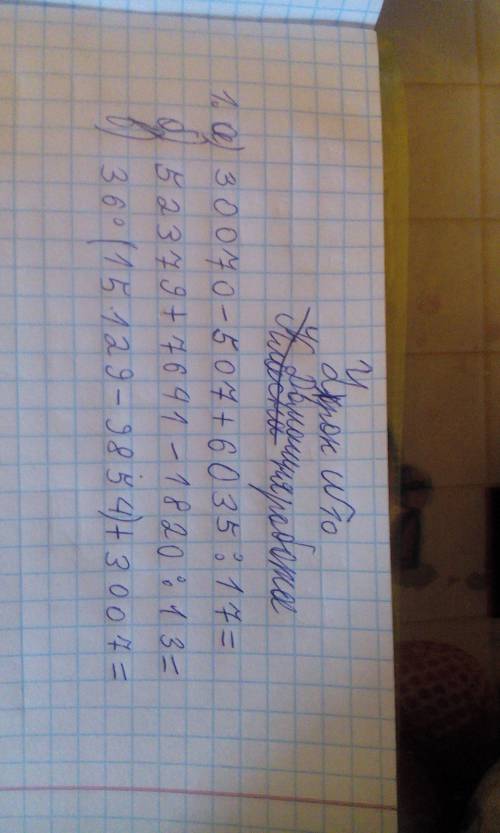 Урок №70
Домашня робота
1. а) 30070-507+6035:17=
б) 52379+7691-1820:13=
в) 36·(15·129-9854)+3007=